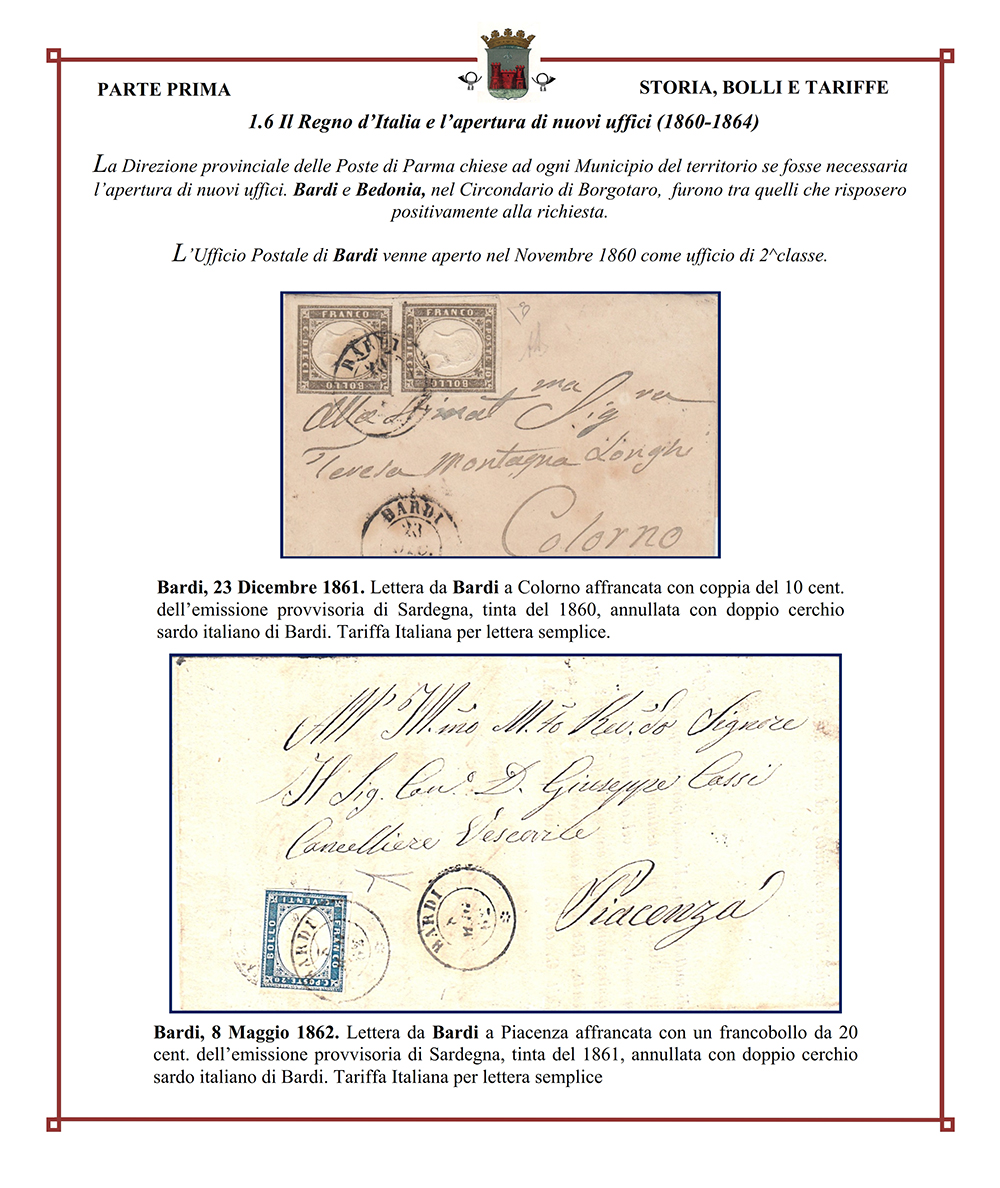 PARTE PRIMA
STORIA, BOLLI E TARIFFE
1.6 Il Regno d'Italia e l'apertura di nuovi uffici (1860-1864)
La Direzione provinciale delle Poste di Parma chiese ad ogni Municipio del territorio se fosse necessaria
l'apertura di nuovi uffici. Bardi e Bedonia, nel Circondario di Borgotaro, furono tra quelli che risposero
positivamente alla richiesta.
L'Ufficio Postale di Bardi venne aperto nel Novembre 1860 come ufficio di 2^classe.
FRANCO
BOLLO
FRANCO
BOLLO
BARDI
Alla Stimat ma Sig ra
Teresa Montagna Longhi
Colorno
BARDI
23
Bardi, 23 Dicembre 1861. Lettera da Bardi a Colorno affrancata con coppia del 10 cent.
dell'emissione provvisoria di Sardegna, tinta del 1860, annullata con doppio cerchio
sardo italiano di Bardi. Tariffa Italiana per lettera semplice.
All' Ill.mo M.to Rev.do Signore
Il Sig. Can.o D. Giuseppe Cassi
Cancelliere Vescovile
Piacenza
C. VENTI
BOLLO
FRANCO
C. POSTE 20
BARDI
BARDI
Bardi, 8 Maggio 1862. Lettera da Bardi a Piacenza affrancata con un francobollo da 20
cent. dell'emissione provvisoria di Sardegna, tinta del 1861, annullata con doppio cerchio
sardo italiano di Bardi. Tariffa Italiana per lettera semplice